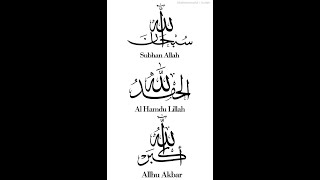 سبحان الله
Subhan Allah
الحمد لله
Al Hamdu Lillah
الله أكبر
Allhu Akbar